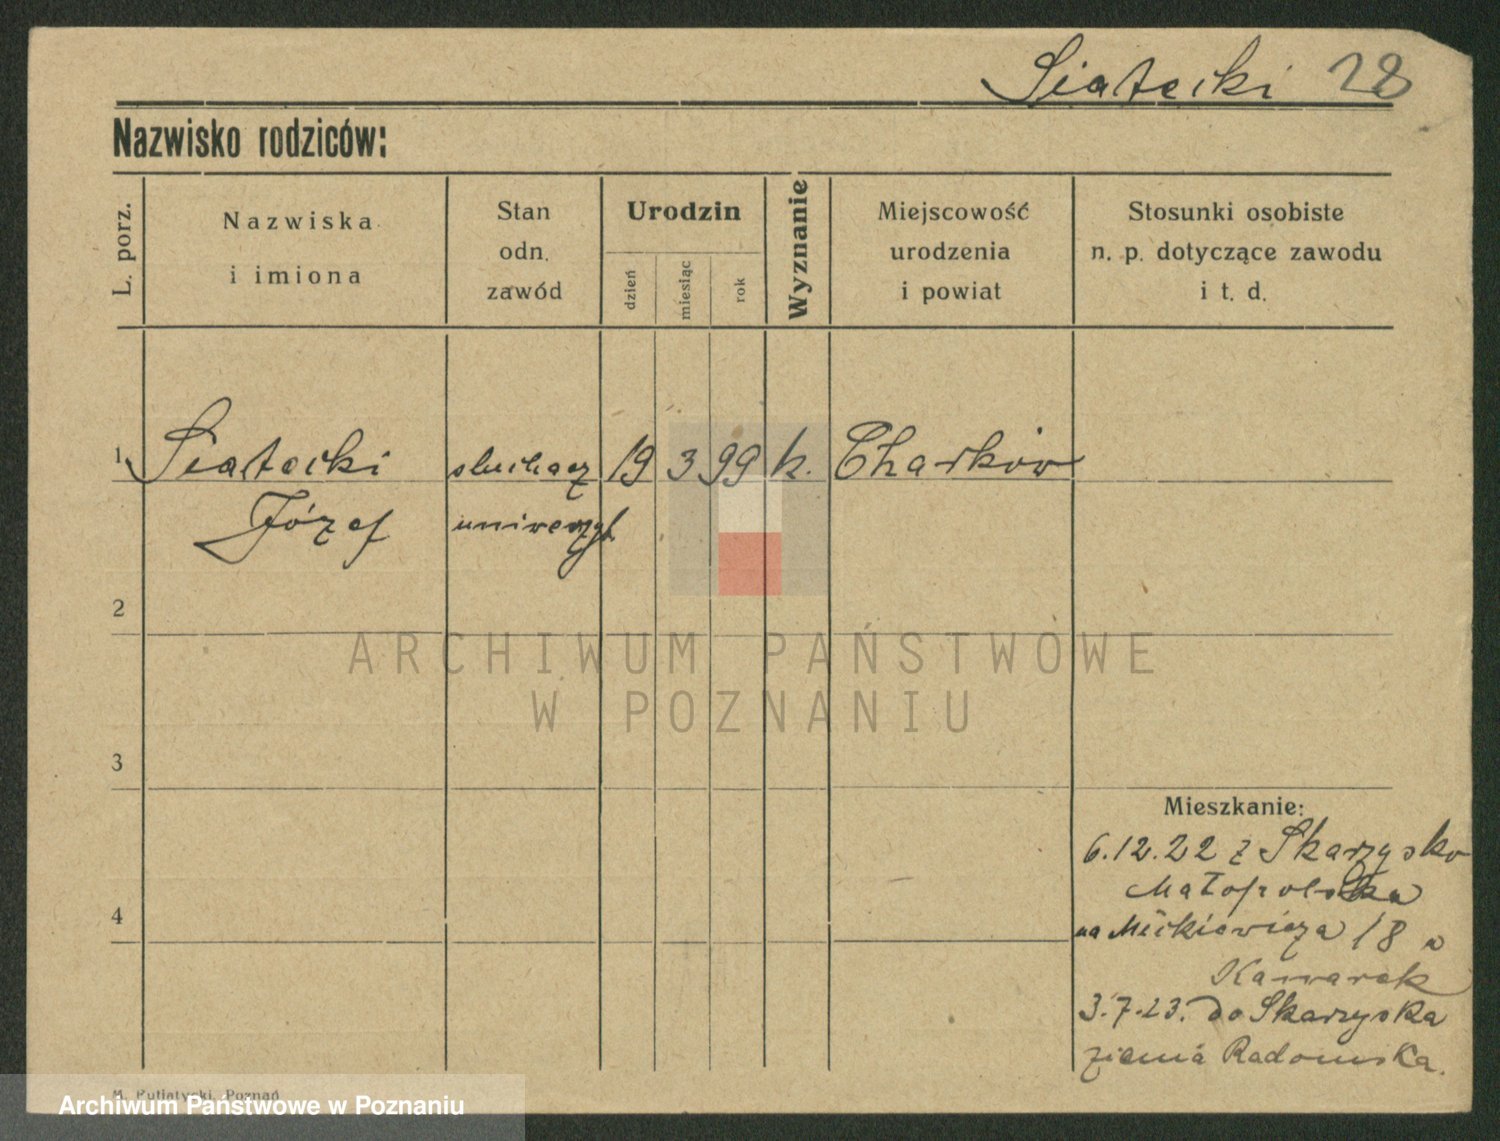 Siatecki 28
Nazwisko rodziców:
L. porz.
Nazwiska
i imiona
Stan
odn.
zawód
Urodzin
dzień
miesiąc
rok
Wyznanie
Miejscowość
urodzenia
i powiat
Stosunki osobiste
n. p. dotyczące zawodu
i t. d.
1 Siatecki słuchacz 19 3 99 k. Charków
Józef uniwerzyt
2
ARCHIWUM PAŃSTWOWE
W POZNANIU
3
Mieszkanie:
6.12.22 z Skarzysko
Małopolska
4
na Mickiewicza 18 a
3.7.23. do Skarzyska
ziemia Radomska.
M. Putiatycki, Poznań
Archiwum Państwowe w Poznaniu